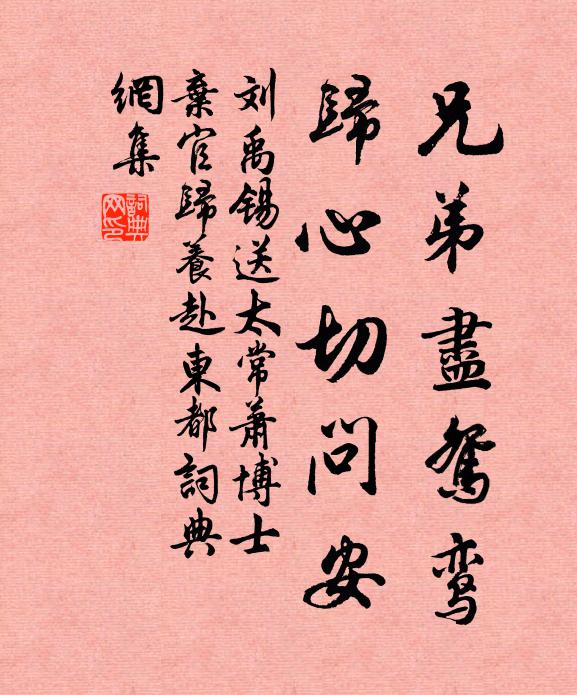 兄弟盡鴛鸾
歸心切問安
刘禹锡送太常蕭博士
棄官歸養赴東都詞典
網集
詞典
网印